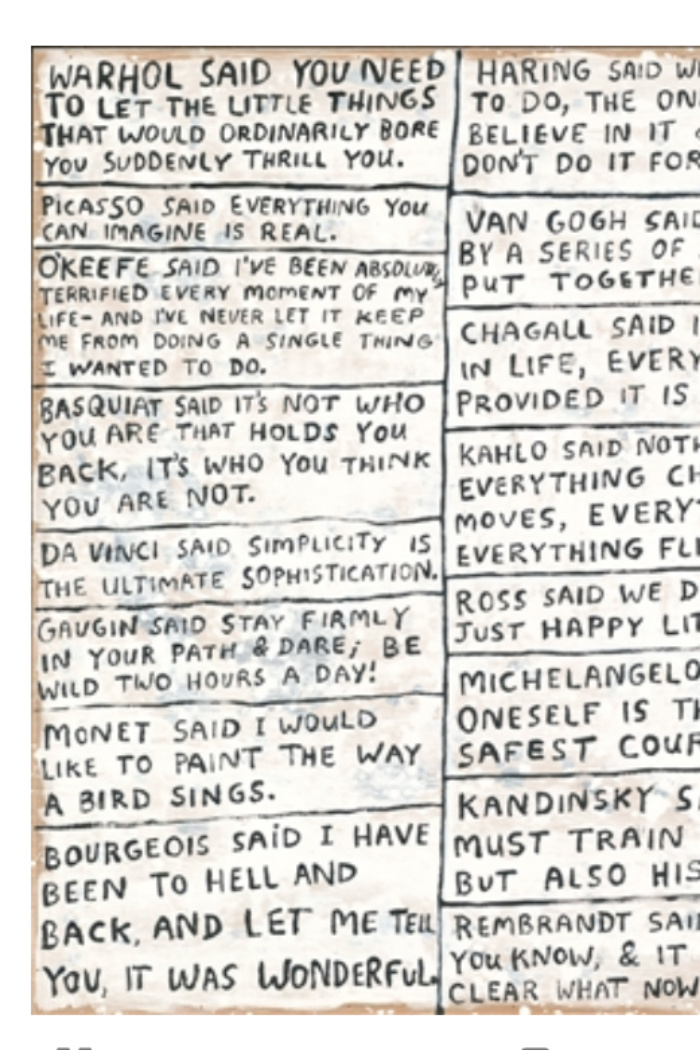 WARHOL SAID YOU NEED
TO LET THE LITTLE THINGS
THAT WOULD ORDINARILY BORE
YOU SUDDENLY THRILL YOU.
PICASSO SAID EVERYTHING YOU
CAN IMAGINE IS REAL.
O'KEEFE SAID I'VE BEEN ABSOLUTELY
TERRIFIED EVERY MOMENT OF MY
LIFE- AND I'VE NEVER LET IT KEEP
ME FROM DOING A SINGLE THING
I WANTED TO DO.
BASQUIAT SAID IT'S NOT WHO
YOU ARE THAT HOLDS YOU
BACK, IT'S WHO YOU THINK
YOU ARE NOT.
DA VINCI SAID SIMPLICITY IS
THE ULTIMATE SOPHISTICATION.
GAUGIN SAID STAY FIRMLY
IN YOUR PATH & DARE; BE
WILD TWO HOURS A DAY!
MONET SAID I WOULD
LIKE TO PAINT THE WAY
A BIRD SINGS.
BOURGEOIS SAID I HAVE
BEEN TO HELL AND
BACK, AND LET ME TELL
YOU, IT WAS WONDERFUL.
HARING SAID
TO DO, THE
BELIEVE IN IT
DON'T DO IT FOR
VAN GOGH SAID
BY A SERIES OF
PUT
CHAGALL SAID
IN LIFE,
PROVIDED IT IS
KAHLO SAID
EVERYTHING
MOVES,
EVERYTHING
ROSS SAID WE
JUST HAPPY
MICHELANGELO
ONESELF IS
SAFEST
KANDINSKY
MUST TRAIN
BUT ALSO HIS
REMBRANDT SAID
YOU KNOW, & IT
CLEAR WHAT NOW